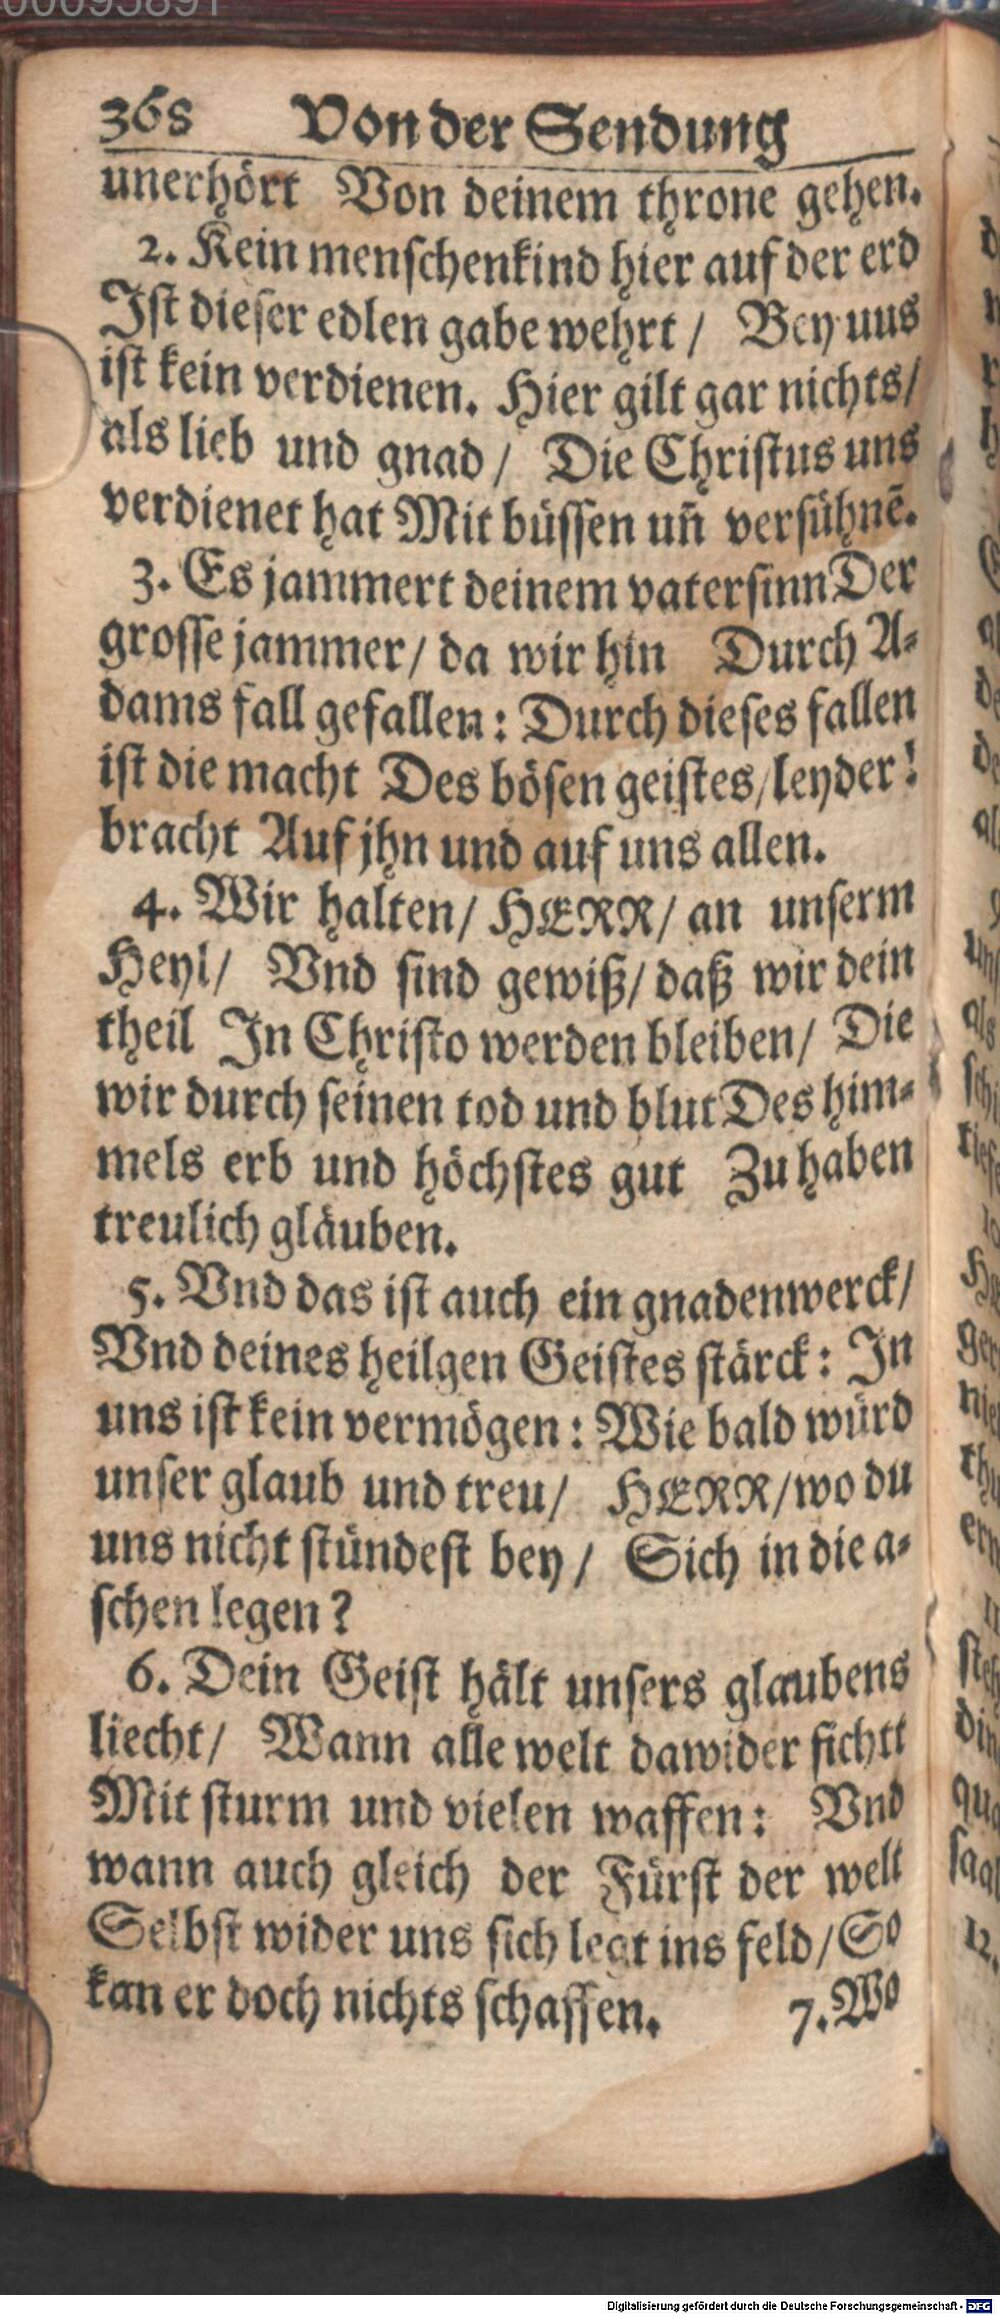 00095891
368 Von der Sendung
unerhört Von deinem throne gehen.
2. Kein menschenkind hier auf der erd
Ist dieser edlen gabe wehrt / Bey uus
ist kein verdienen. Hier gilt gar nichts /
als lieb und gnad / Die Christus uns
verdienet hat Mit büssen uñ versühnẽ.
3. Es jammert deinem vatersinn Der
grosse jammer / da wir hin Durch A⸗
dams fall gefallen: Durch dieses fallen
ist die macht Des bösen geistes / leyder!
bracht Auf jhn und auf uns allen.
4. Wir halten / HERR / an unserm
Heyl / Vnd sind gewiß / daß wir dein
theil In Christo werden bleiben / Die
wir durch seinen tod und blut Des him⸗
mels erb und höchstes gut Zu haben
treulich gläuben.
5. Vnd das ist auch ein gnadenwerck /
Vnd deines heilgen Geistes stärck: In
uns ist kein vermögen: Wie bald würd
unser glaub und treu / HERR / wo du
uns nicht stündest bey / Sich in die a⸗
schen legen?
6. Dein Geist hält unsers glaubens
liecht / Wann alle welt dawider fichtt
Mit sturm und vielen waffen: Vnd
wann auch gleich der Fürst der welt
Selbst wider uns sich legt ins feld / So
kan er doch nichts schaffen. 7. Wo
Digitalisierung gefördert durch die Deutsche Forschungsgemeinschaft - DFG